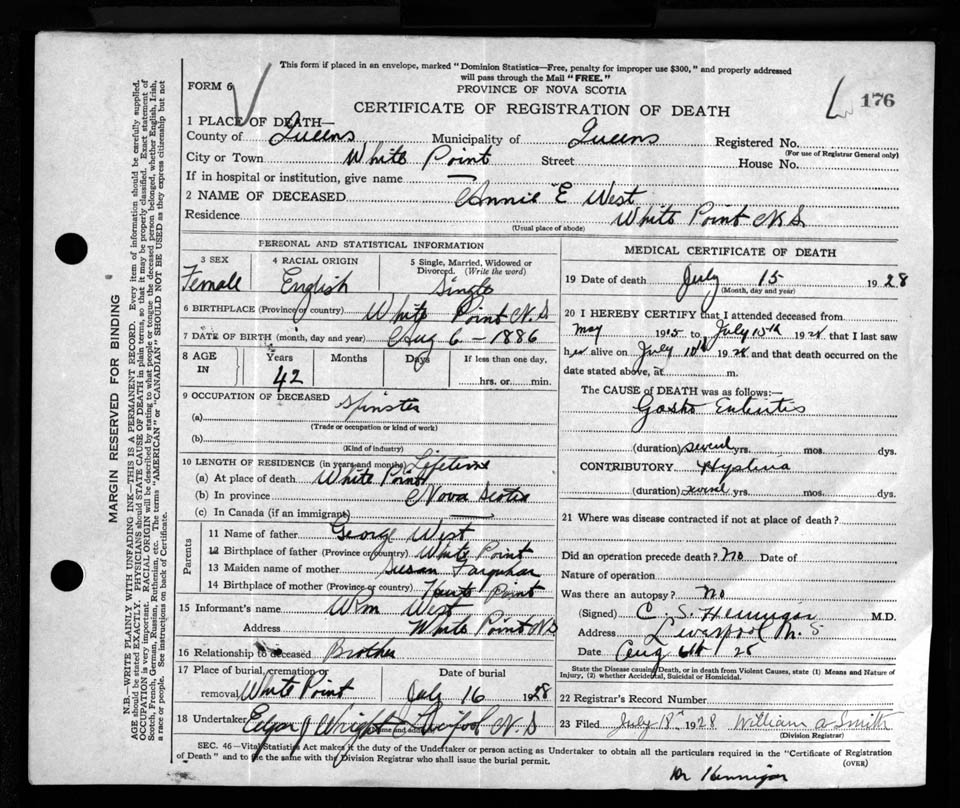 This form if placed in an envelope, marked "Dominion Statistics—Free, penalty for improper use $300," and properly addressed
will pass through the Mail "FREE."
FORM 6
PROVINCE OF NOVA SCOTIA
CERTIFICATE OF REGISTRATION OF DEATH
176
1 PLACE OF DEATH—
County of Queens Municipality of Queens Registered No.
(For use of Registrar General only)
City or Town White Point Street House No.
If in hospital or institution, give name —
2 NAME OF DECEASED Annie E West
Residence White Point N.S
(Usual place of abode)
PERSONAL AND STATISTICAL INFORMATION
3 SEX 4 RACIAL ORIGIN 5 Single, Married, Widowed or Divorced. (Write the word)
Female English Single
6 BIRTHPLACE (Province or country) White Point N.S
7 DATE OF BIRTH (month, day and year) Aug 6 - 1886
8 AGE IN Years Months Days If less than one day,
42 hrs. or min.
9 OCCUPATION OF DECEASED
(a) Spinster
(Trade or occupation or kind of work)
(b)
(Kind of industry)
10 LENGTH OF RESIDENCE (in years and months) Lifetime
(a) At place of death White Point
(b) In province Nova Scotia
(c) In Canada (if an immigrant) —
Parents
11 Name of father George West
12 Birthplace of father (Province or country) White Point
13 Maiden name of mother Susan Farquhar
14 Birthplace of mother (Province or country) Point
15 Informant's name Wm West
Address White Point N.S
16 Relationship to deceased Brother
17 Place of burial, cremation or removal White Point Date of burial July 16 1928
18 Undertaker Edgar J Wright Liverpool N.S
(Name and address)
MEDICAL CERTIFICATE OF DEATH
19 Date of death July 15 1928
(Month, day and year)
20 I HEREBY CERTIFY that I attended deceased from
May 1915 to July 15th 1928 that I last saw
her alive on July 10th 1928 and that death occurred on the
date stated above, at m.
The CAUSE OF DEATH was as follows:—
Gastro Enteritis
(duration) several yrs. mos. dys.
CONTRIBUTORY
(duration) several yrs. mos. dys.
21 Where was disease contracted if not at place of death?
Did an operation precede death? No Date of
Nature of operation
Was there an autopsy? No
(Signed) C. S. Hennigar M.D.
Address Liverpool N.S
Date Aug 6th 28
State the Disease causing Death, or in death from Violent Causes, state (1) Means and Nature of
Injury, (2) whether Accidental, Suicidal or Homicidal.
22 Registrar's Record Number
23 Filed July 18th 1928 William A Smith
(Division Registrar)
SEC. 46—Vital Statistics Act makes it the duty of the Undertaker or person acting as Undertaker to obtain all the particulars required in the "Certificate of Registration
of Death" and to file the same with the Division Registrar who shall issue the burial permit.
(OVER)
Dr Hennigar
MARGIN RESERVED FOR BINDING
N.B.—WRITE PLAINLY WITH UNFADING INK—THIS IS A PERMANENT RECORD. Every item of information should be carefully supplied.
AGE should be stated EXACTLY. PHYSICIANS should STATE CAUSE OF DEATH in plain terms, so that it may be properly classified. Exact statement of
OCCUPATION is very important. RACIAL ORIGIN will be described by stating to what people or tongue the deceased person belonged, whether English, Irish,
Scotch, French, German, Russian, Ruthenian, etc. The terms "AMERICAN" or "CANADIAN" SHOULD NOT BE USED as they express citizenship but not
a race or people. See instructions on back of Certificate.